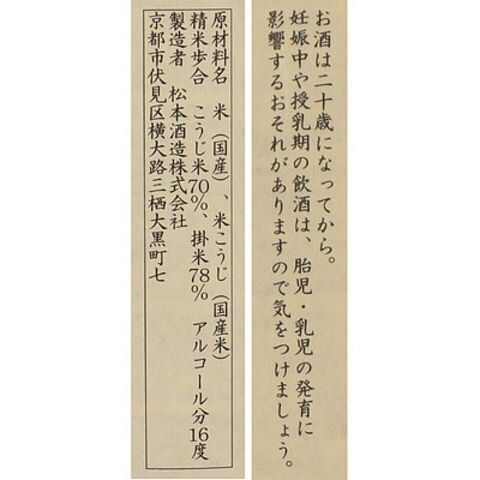 お酒は二十歳になってから。
妊娠中や授乳期の飲酒は、胎児・乳児の発育に
影響するおそれがありますので気をつけましょう。
原材料名　米（国産）、米こうじ（国産米）
精米歩合　こうじ米70%、掛米78%　アルコール分16度
製造者　松本酒造株式会社
京都市伏見区横大路三栖大黒町七